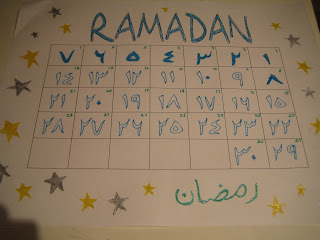 RAMADAN
١ ٢ ٣ ٤ ٥ ٦ ٧
٨ ٩ ١٠ ١١ ١٢ ١٣ ١٤
١٥ ١٦ ١٧ ١٨ ١٩ ٢٠ ٢١
٢٢ ٢٣ ٢٤ ٢٥ ٢٦ ٢٧ ٢٨
٢٩ ٣٠
رمضان